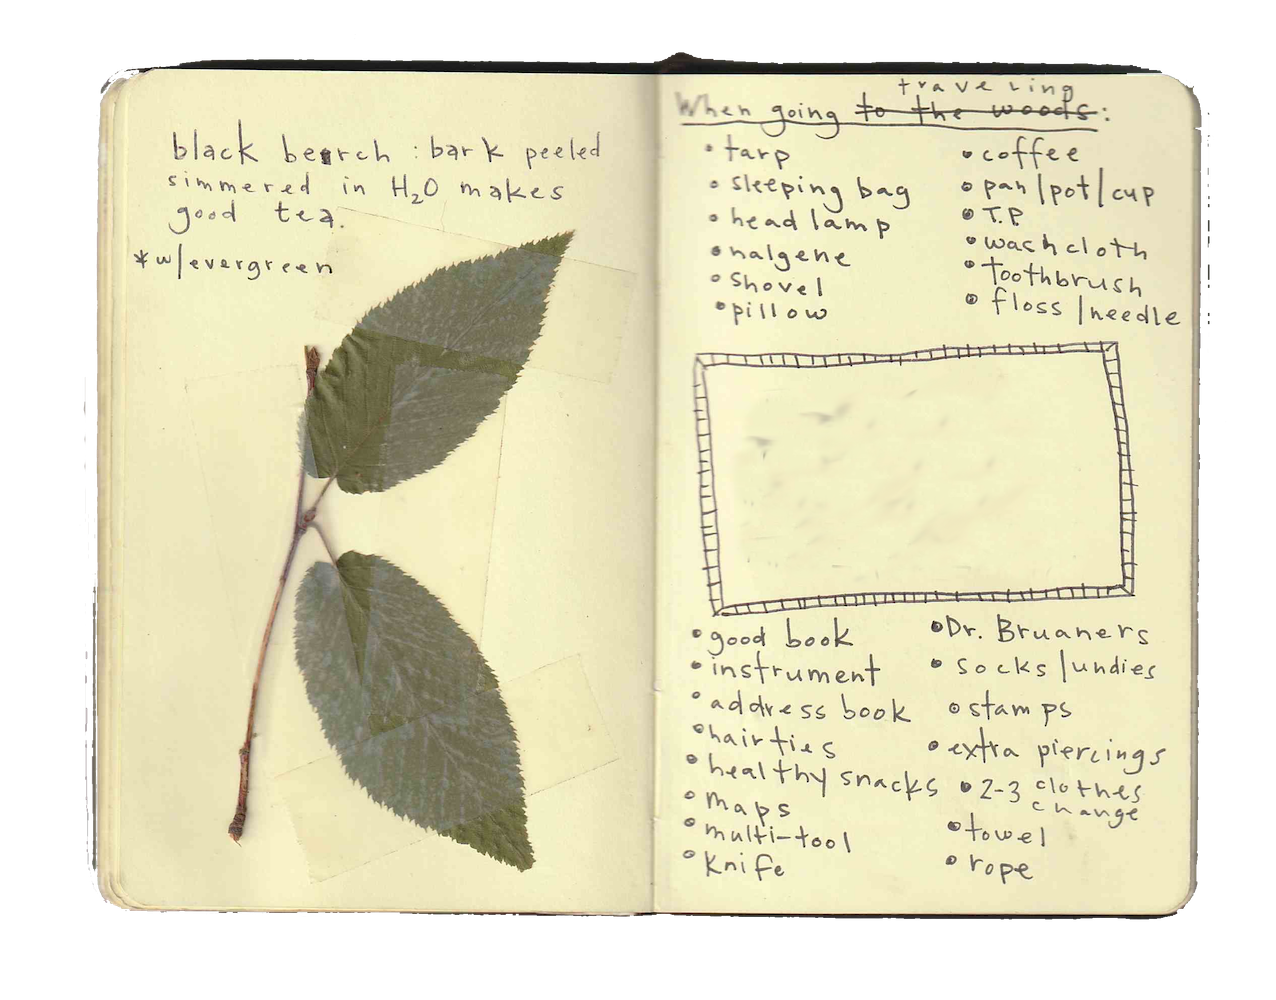 black beerch : bark peeled
simmered in H₂O makes
good tea.
*w/evergreen
traveling
When going to the woods:
• tarp
• sleeping bag
• head lamp
• nalgene
• shovel
• pillow
• coffee
• pan/pot/cup
• T.P.
• washcloth
• toothbrush
• floss/needle
• good book
• instrument
• address book
• hairties
• healthy snacks
• maps
• multi-tool
• knife
• Dr. Bruaners
• socks/undies
• stamps
• extra piercings
• 2-3 clothes
change
• towel
• rope